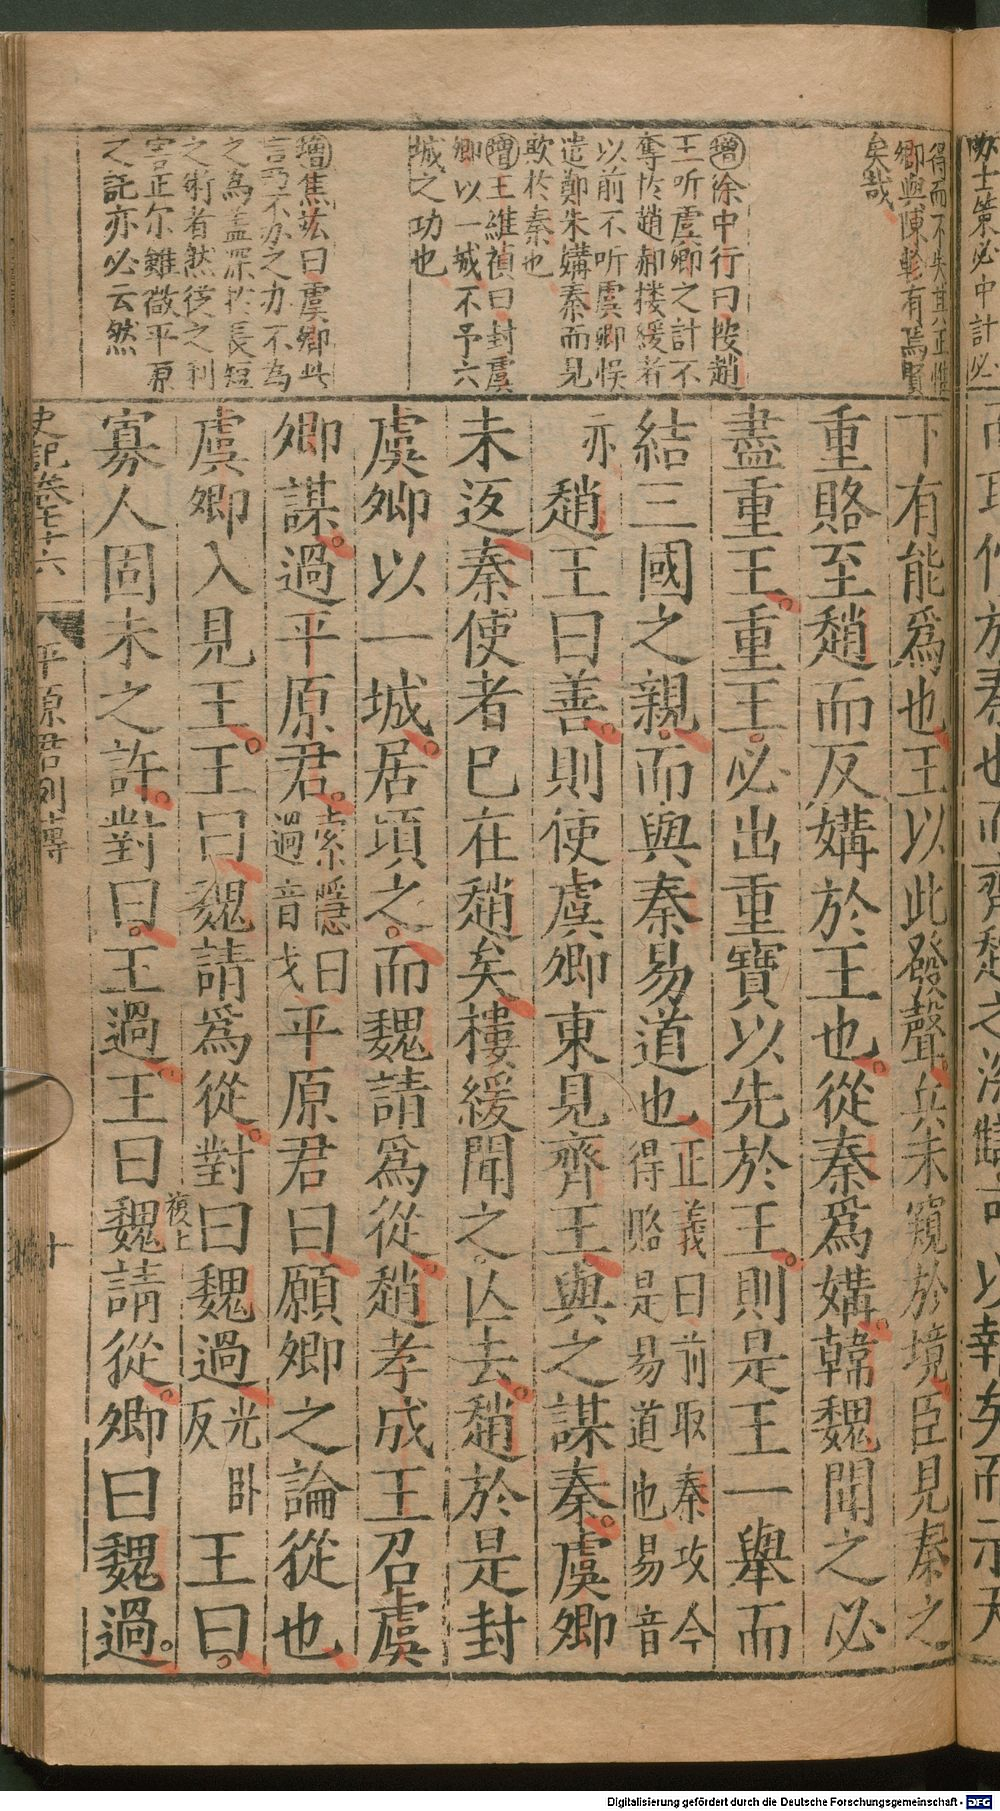 得而不失其正惟
卿與陳軫有焉賢
矣哉
增徐中行曰按趙
王听虞卿之計不
奪於趙郝樓緩者
以前不听虞卿悞
遣鄭朱媾秦而見
欺於秦也
增王維禎曰封虞
卿以一城不予六
城之功也
增焦竑曰虞卿此
言乃不办之办不為
之為盖深於長短
之術者然從之利
害正尔雖微平原
之託亦必云然
下有能爲也王以此發聲兵未窺於境臣見秦之
重賂至趙而反媾於王也從秦爲媾韓魏聞之必
盡重王重王必出重寶以先於王則是王一舉而
結三國之親而與秦易道也正義曰前取秦攻今得賂是易道也易音
亦趙王曰善則使虞卿東見齊王與之謀秦虞卿
未返秦使者已在趙矣樓緩聞之亾去趙於是封
虞卿以一城居頃之而魏請爲從趙孝成王召虞
卿謀過平原君索隱曰過音戈平原君曰願卿之論從也
虞卿入見王王曰魏請爲從對曰魏過光卧反王曰
複上
寡人固未之許對曰王過王曰魏請從卿曰魏過
史記卷七十六
平原君列傳
十
Digitalisierung gefördert durch die Deutsche Forschungsgemeinschaft - DFG